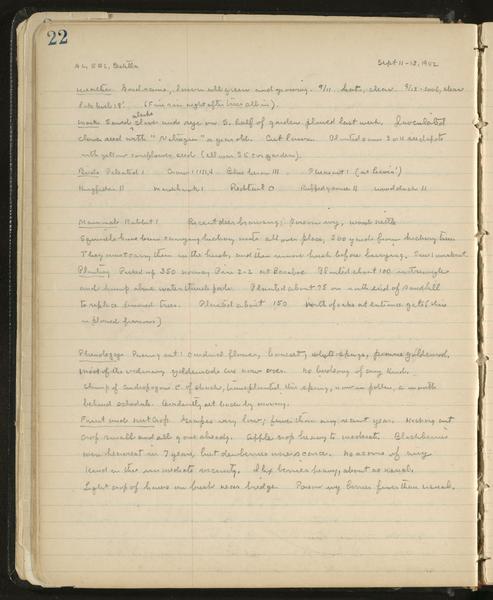 22
AL, EBL, Estella Sept 11-13, 1942
Weather Good rains, lawn still green and growing. 9/11 hot, clear 9/12 cool, clear
Lake level 18". (5 in rain night after trees all in).
Work Sowed clover and rye on S. half of garden plowed last week. Inoculated
clover seed with "Nitragin" a year old. Cut lawn. Planted some 3 x 4 seedspots
with yellow coneflower seed (all over SE cor garden).
Birds Pileated 1 Crow Blue heron III Pheasant 1 (at Lewis')
Kingfisher II Nighthawk 1 Redtail 0 Ruffed grouse II Woodduck II
Mammals Rabbit 1 Recent deer browsing: poison ivy, wood nettle
Squirrels have been carrying hickory nuts all over place, 200 yards from hickory trees
They must carry them in the husk, and then remove husk before burying. Saw 1 muskrat.
Planting Picked up 350 Norway Pine 2-2 at Baraboo. Planted about 100 in triangle
and along above water struck pole. Planted about 75 on north end of sandhill
to replace burned trees. Planted about 150 north of oaks at entrance gate (this
in plowed furrows)
Phenology Passing out: cardinal flower, boneset, white spurge, prairie goldenrod.
Most of the ordinary goldenrods are now over. No budding of any kind.
Clump of andropogon E. of shack, transplanted this spring, now in pollen, a month
behind schedule. Evidently set back by moving.
Fruit and Nut Crop Grapes very low; fewer than any recent year. Hickory nut
crop small and all gone already. Apple crop heavy to moderate. Blackberries
were heaviest in 7 years, but dewberries were scarce. No acorns of any
kind in the immediate vicinity. Ilex berries heavy, about as usual.
Light crop of haws on bush near bridge. Poison ivy berries fewer than usual.